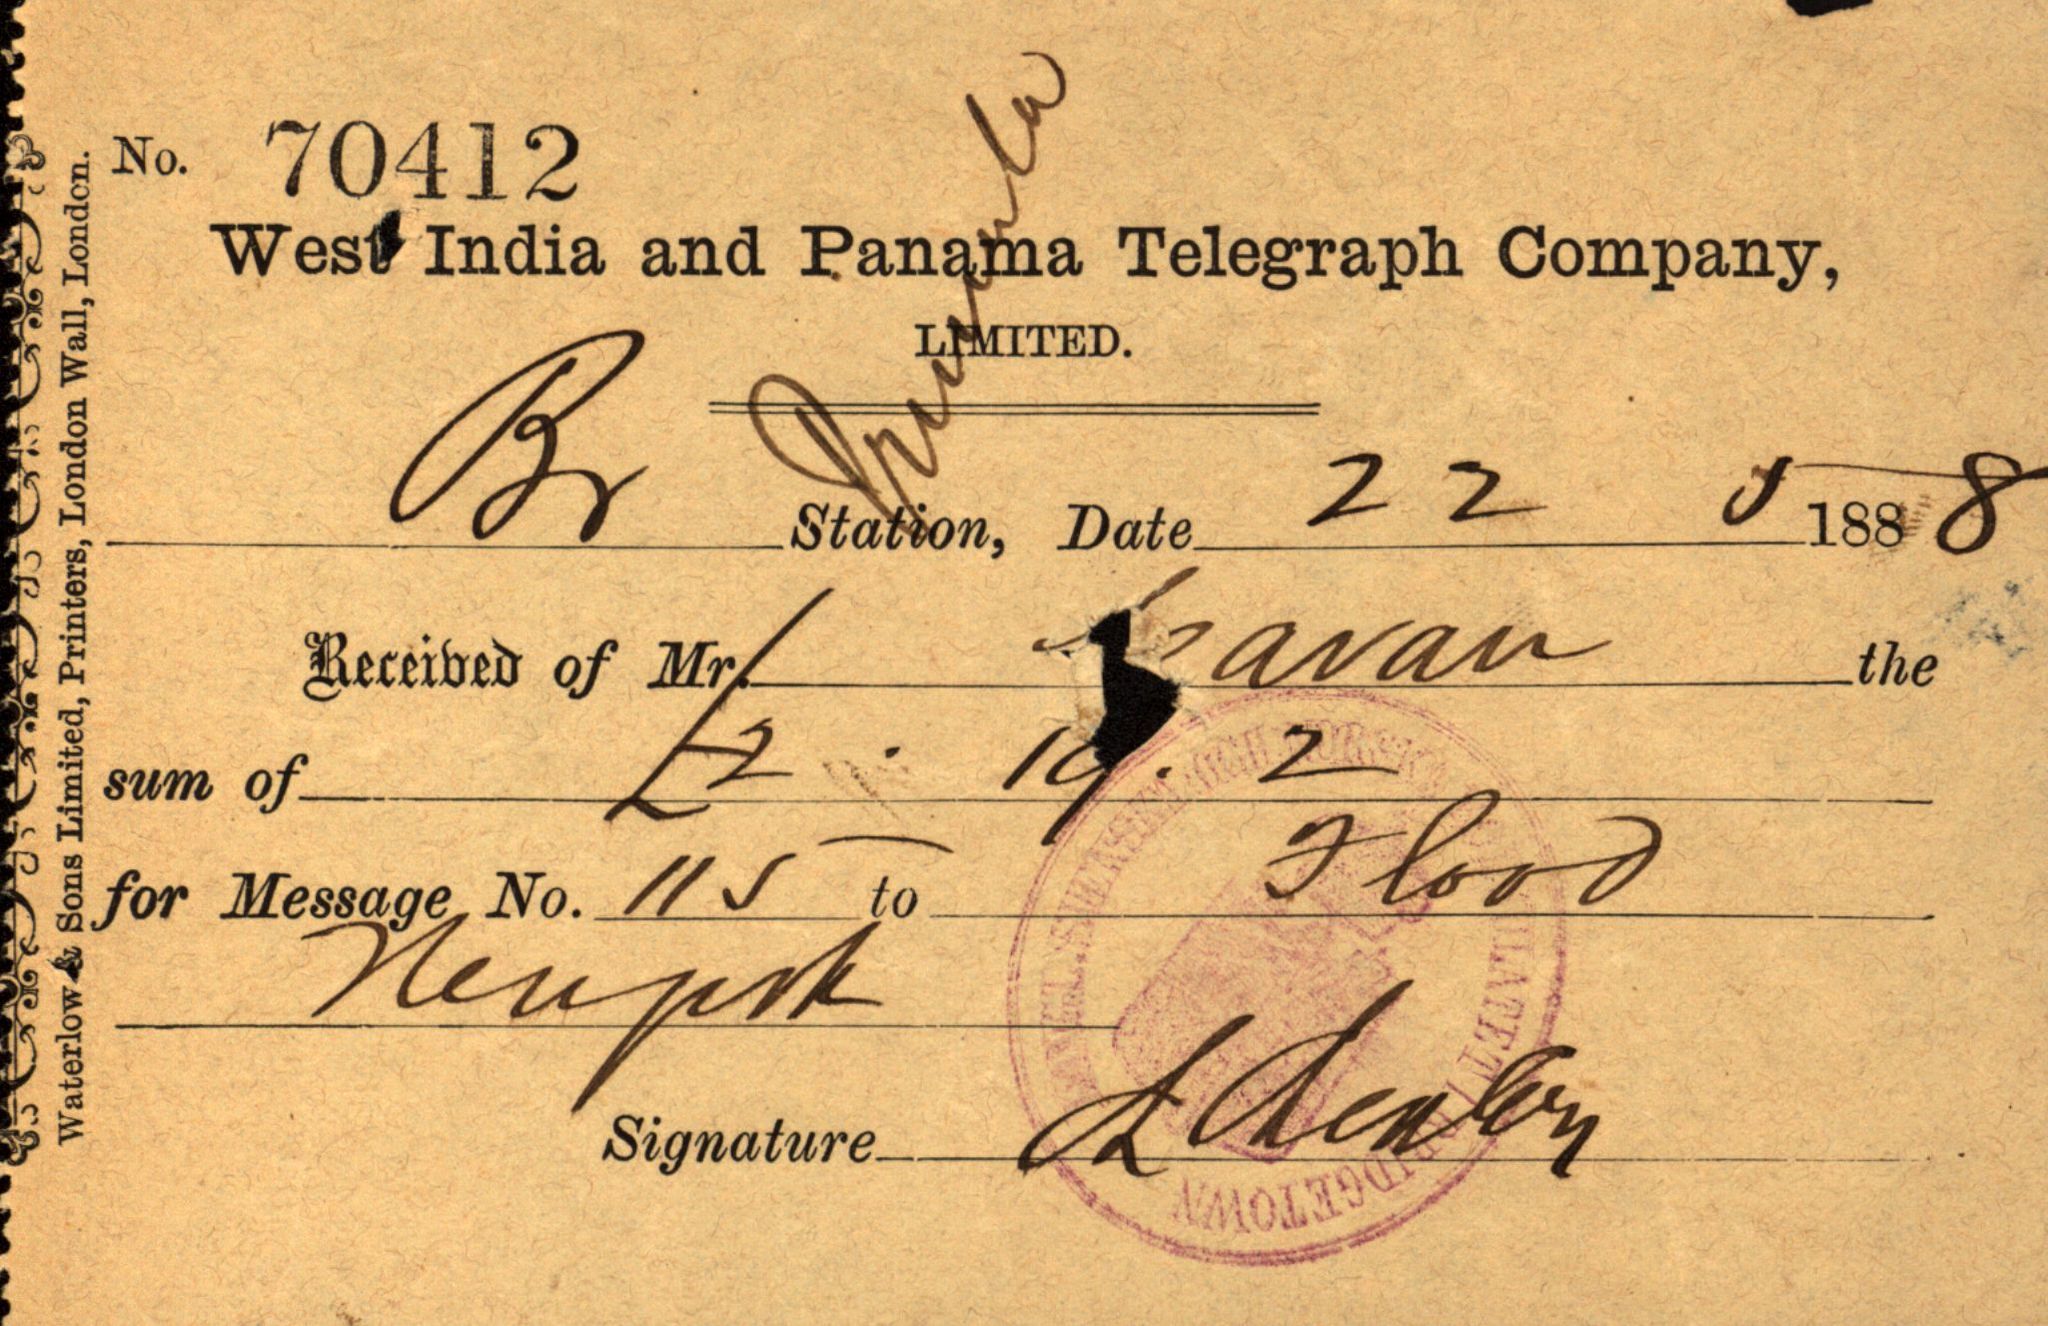 No. 70412
West India and Panama Telegraph Company,
LIMITED.
Br Station, Date 22 5 1888
Received of Mr. avan the
sum of £2 . 19 . 2
for Message No. 115 to Flood
Newpork
Signature
Waterlow & Sons Limited, Printers, London Wall, London.
BRIDGETOWN